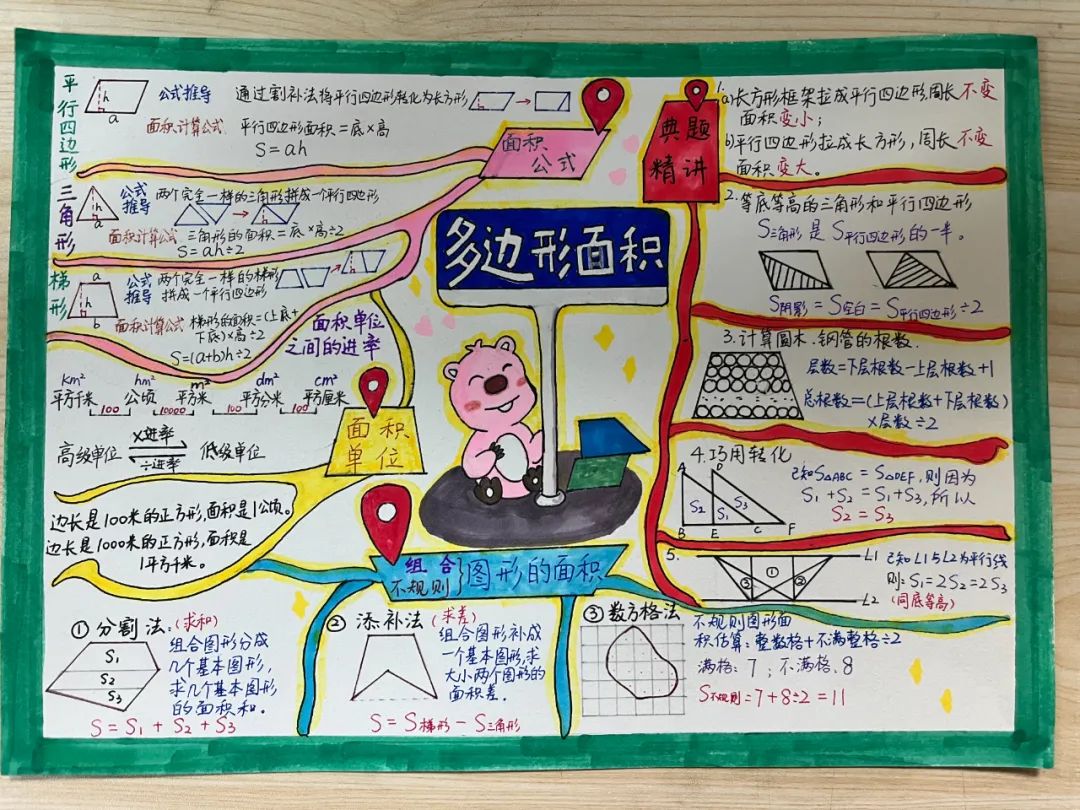 多边形面积
平行四边形
h
a
公式推导
通过割补法将平行四边形转化为长方形
面积计算公式
平行四边形面积=底×高
S=ah
三角形
h
a
公式
推导
两个完全一样的三角形拼成一个平行四边形
面积计算公式
三角形的面积=底×高÷2
S=ah÷2
梯形
a
h
b
公式
推导
两个完全一样的梯形
拼成一个平行四边形
面积计算公式
梯形的面积=(上底+
下底)×高÷2
S=(a+b)h÷2
面积
公式
面积单位
之间的进率
km² hm² m² dm² cm²
平方千米 公顷 平方米 平方分米 平方厘米
100 10000 100 100
高级单位
×进率
÷进率
低级单位
面积
单位
边长是100米的正方形,面积是1公顷。
边长是1000米的正方形,面积是
1平方千米。
组合
不规则
图形的面积
①分割法.(求和)
S₁
S₂
S₃
组合图形分成
几个基本图形,
求几个基本图形
的面积和.
S=S₁+S₂+S₃
②添补法(求差)
组合图形补成
一个基本图形,求
大小两个图形的
面积差.
S=S梯形-S三角形
③数方格法
不规则图形面
积估算:整数格+不满整格÷2
满格:7;不满格:8
S不规则=7+8÷2=11
典题
精讲
1.a)长方形框架拉成平行四边形,周长不变
面积变小;
b)平行四边形拉成长方形,周长不变
面积变大。
2.等底等高的三角形和平行四边形
S三角形是S平行四边形的一半。
S阴影=S空白=S平行四边形÷2
3.计算圆木.钢管的根数.
层数=下层根数-上层根数+1
总根数=(上层根数+下层根数)
×层数÷2
4.巧用转化
A D
S₂ S₁ S₃
B E C F
已知S△ABC=S△DEF,则因为
S₁+S₂=S₁+S₃,所以
S₂=S₃
5.
L1
③ ① ②
L2
已知L1与L2为平行线
则:S₁=2S₂=2S₃
(同底等高)